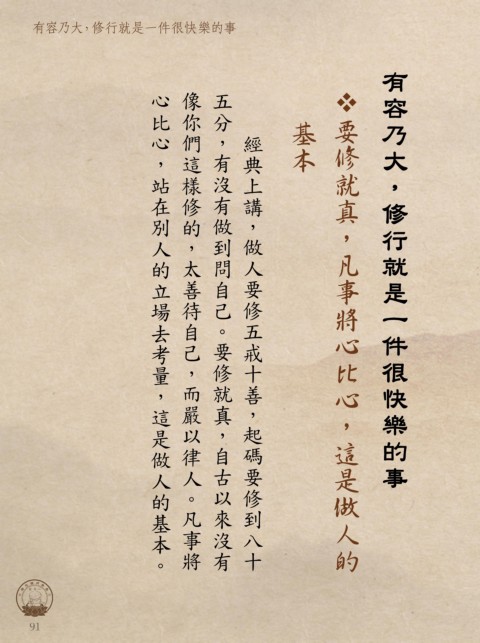 有容乃大，修行就是一件很快樂的事
有容乃大，修行就是一件很快樂的事
❖要修就真，凡事將心比心，這是做人的
基本
經典上講，做人要修五戒十善，起碼要修到八十
五分，有沒有做到問自己。要修就真，自古以來沒有
像你們這樣修的，太善待自己，而嚴以律人。凡事將
心比心，站在別人的立場去考量，這是做人的基本。
91